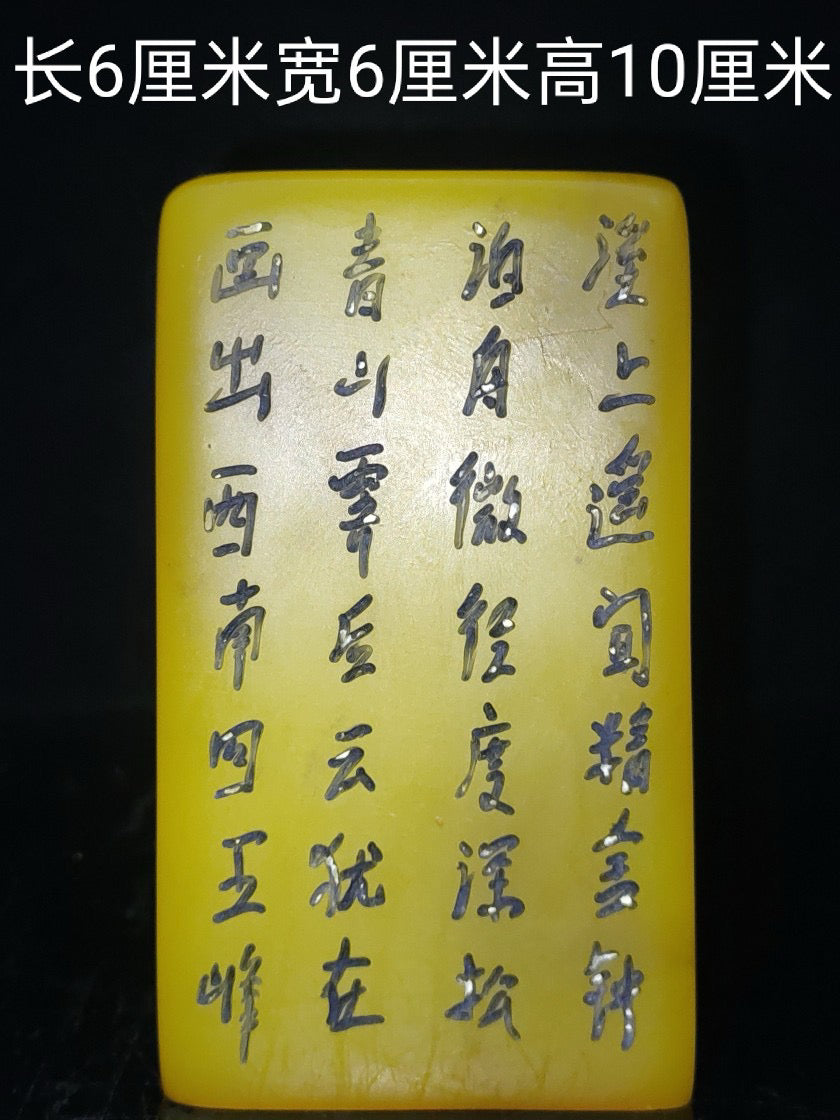 长6厘米宽6厘米高10厘米
溪上遥闻精舍钟
泊舟微径度深松
青山霁后云犹在
画出西南四五峰